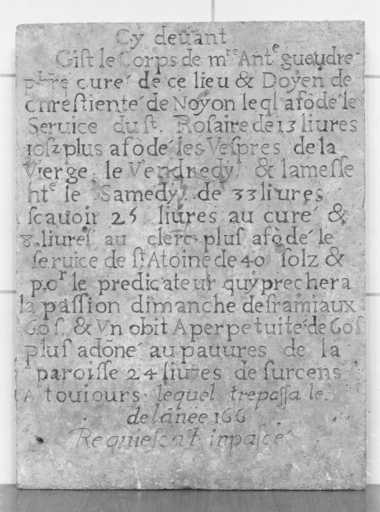 Cy deuant
Gist le Corps de m^re Ant^e gueudre
p^bre cure' de ce lieu & Doyen de
chrestiente' de Noyon leql afōdé le
Seruice du s^t. Rosaire de 13 liures
10s2 plus afōdé les Vespres de la
Vierge le Vendredy, & la messe
ht^e le Samedy, de 33 liures
scauoir 25 liures au cure' &
8 liures au clerc plus afōdé le
seruice de s^t Atoine de 40 solz &
po^r le predicateur quy prechera
la passion dimanche des ramiaux
60 s, & Vn obit A perpetuite' de 60 s
plus adōné au pauures de la
paroisse 24 liures de surcens
A toujours lequel trepassa le
de lánee 166
Requiescat in pace